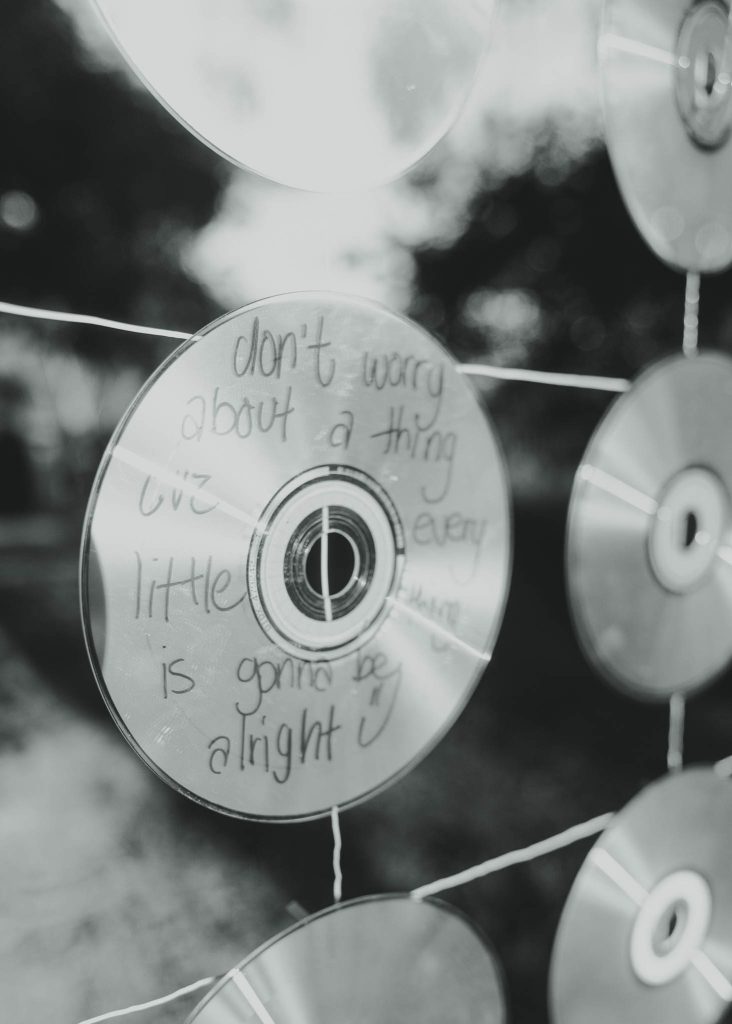 don't worry
about a thing
cuz every
little thing
is gonna be
alright